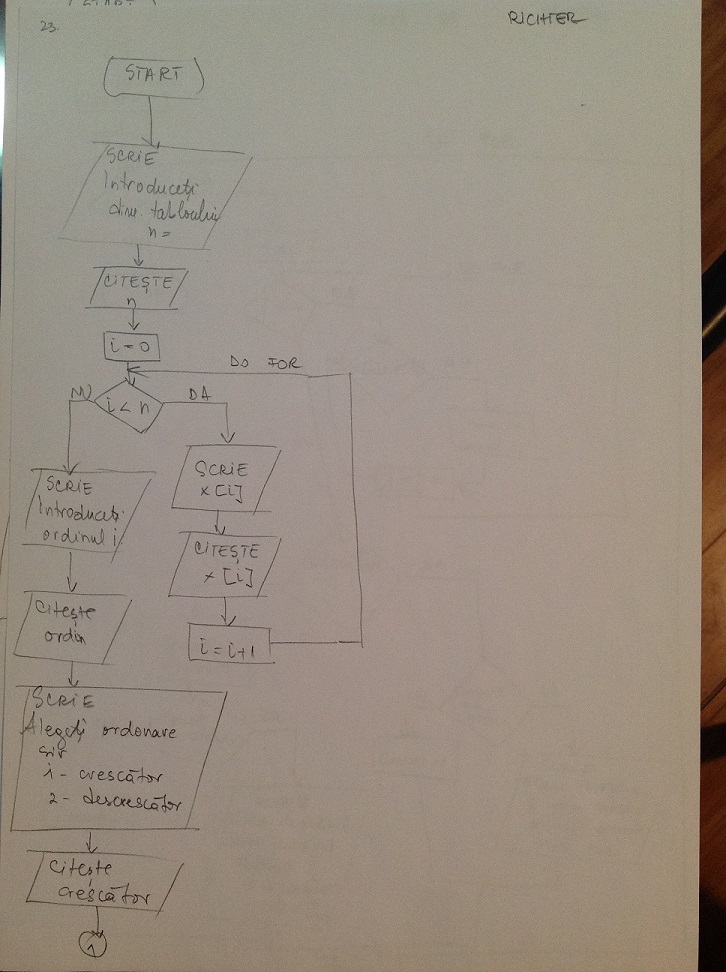 23.
RICHTER
START
SCRIE
Introduceți
dim. tabloului
n =
CITEȘTE
n
i = 0
DO FOR
NU
i < n
DA
SCRIE
x [i]
CITEȘTE
x [i]
i = i+1
SCRIE
Introduceți
ordinul i
Citește
ordin
SCRIE
Alegeți ordonare
șir
1 - crescător
2 - descrescător
Citește
crescător
1